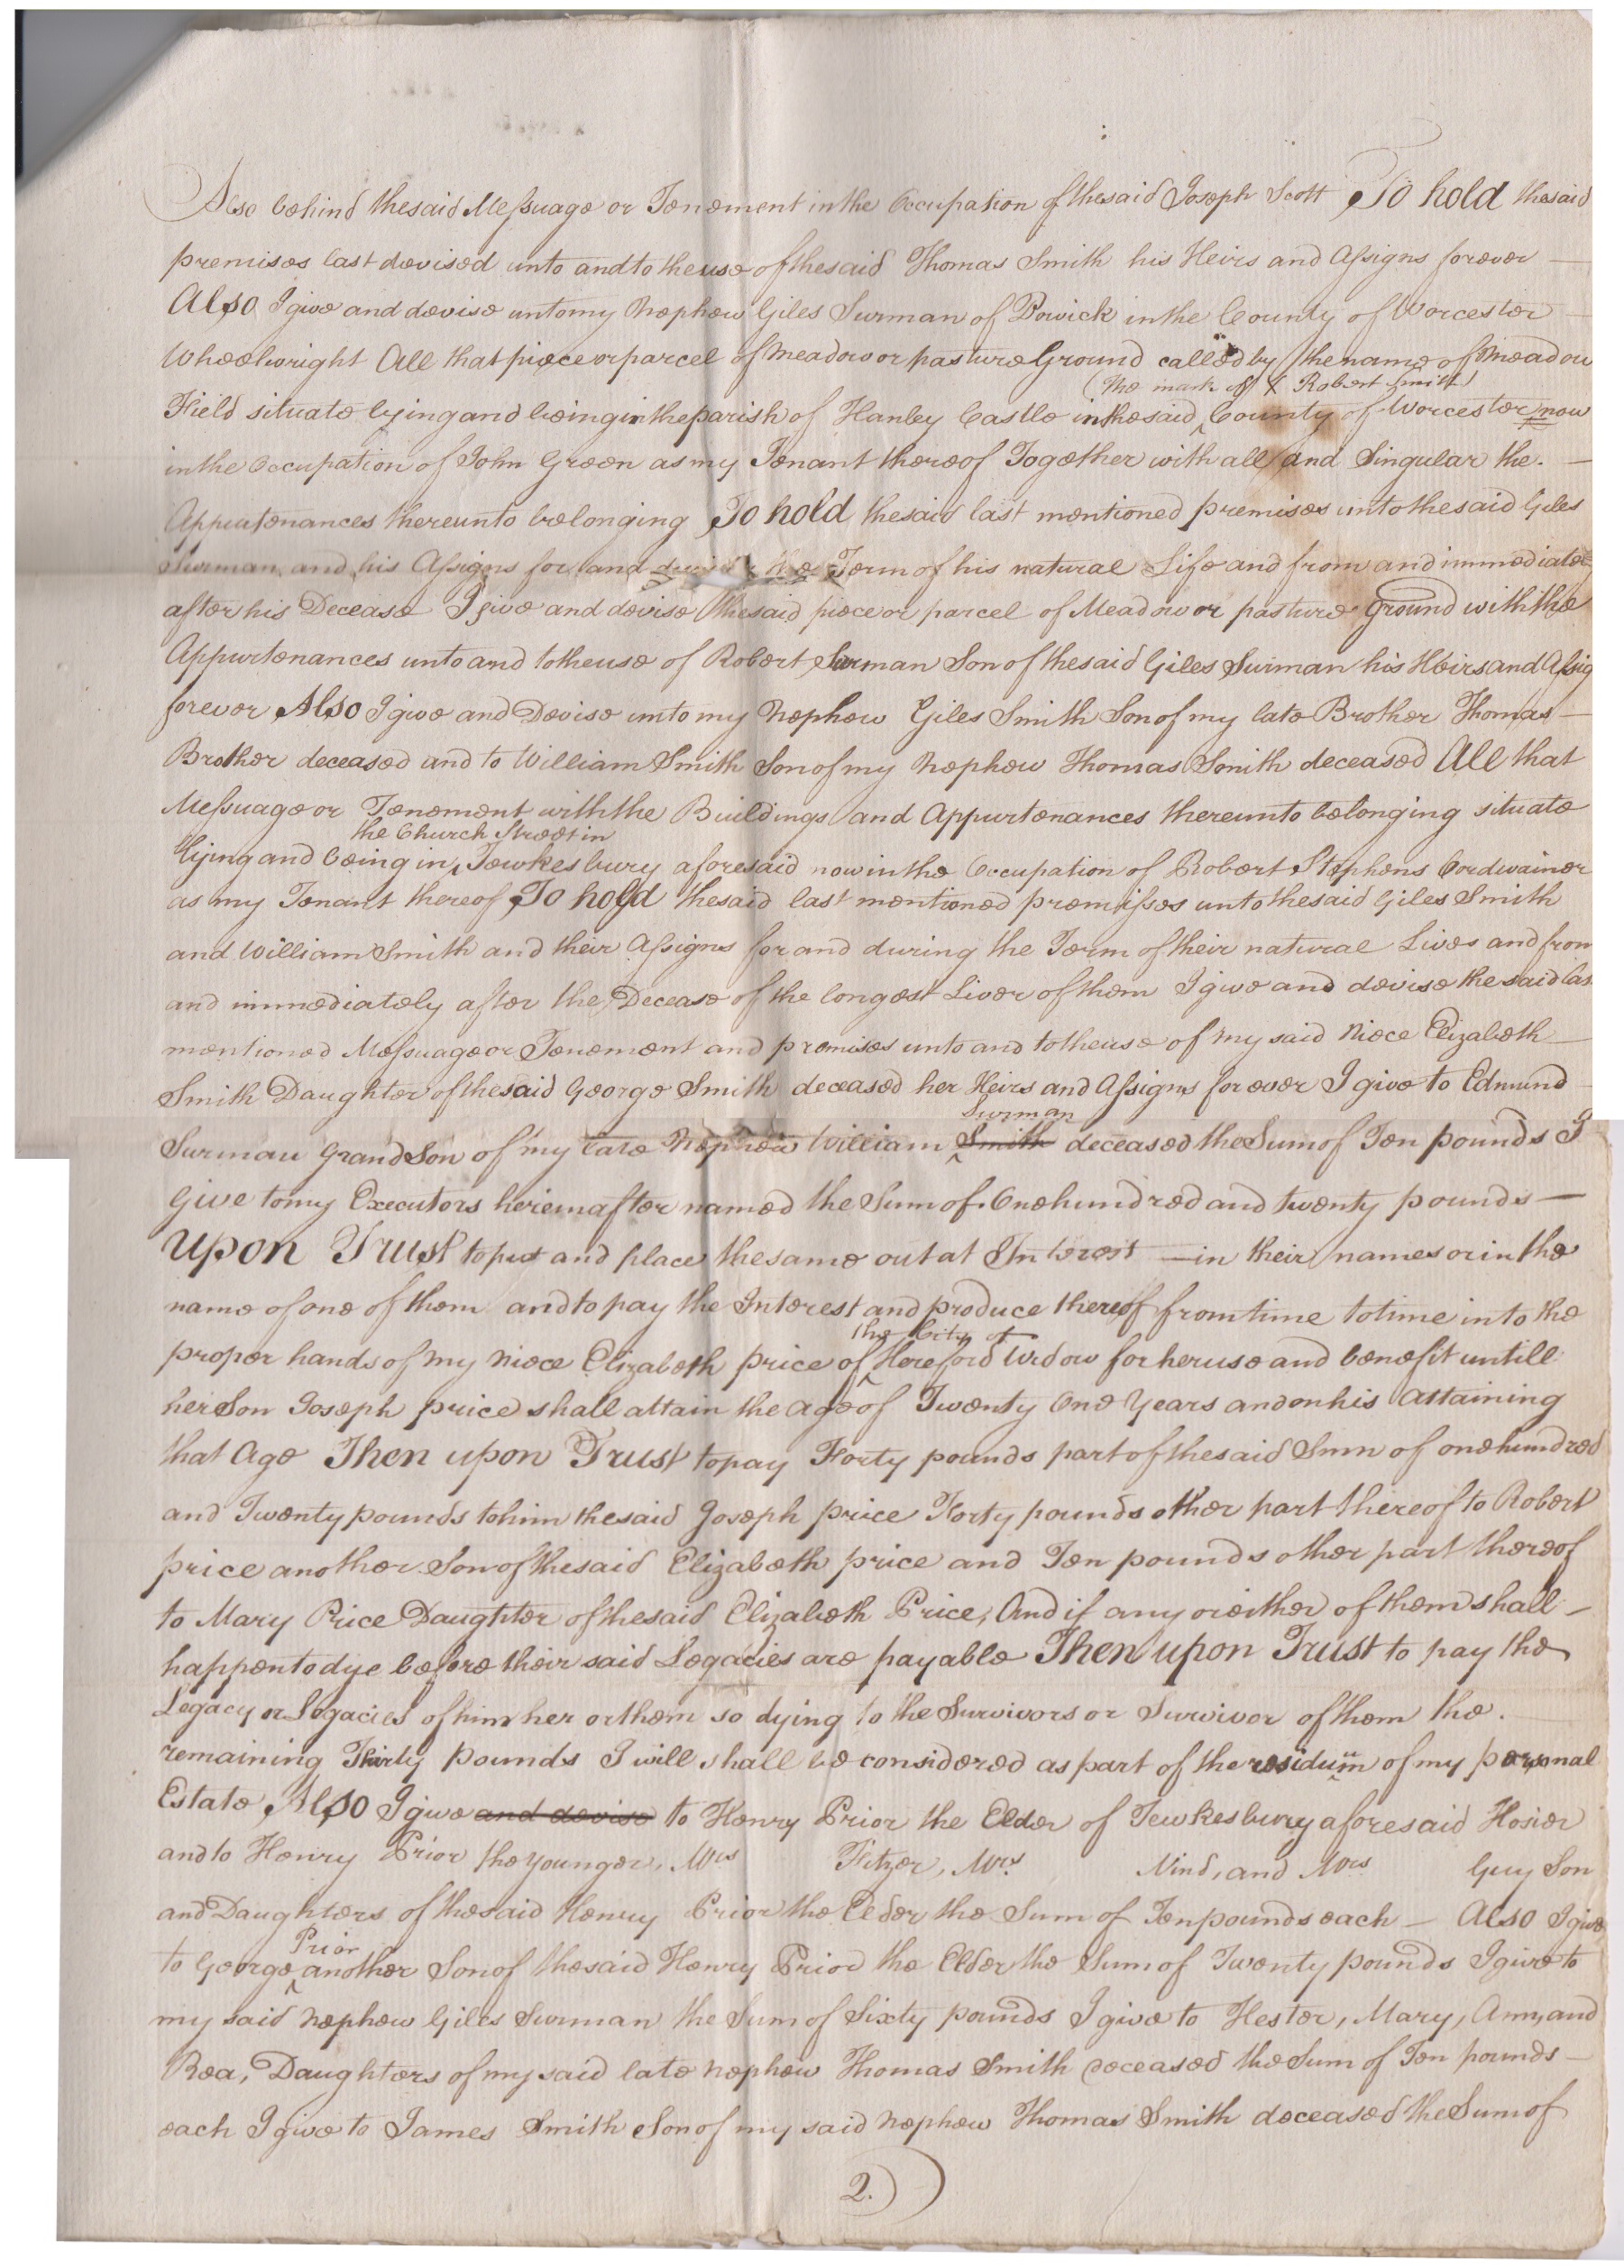 Also behind the said Messuage or Tenement in the Occupation of the said Joseph Scott To hold the said
premises last devised unto and to the use of the said Thomas Smith his Heirs and Assigns forever —
Also I give and devise unto my Nephew Giles Surman of Powick in the County of Worcester —
Wheelwright All that piece or parcel of meadow or pasture Ground called by the name of Meadow
(The mark of X Robert Smith)
Field situate lying and being in the parish of Hanley Castle in the said ‸ County of Worcester now
in the Occupation of John Green as my Tenant thereof Together with all and Singular the. —
Appurtenances thereunto belonging To hold the said last mentioned premises unto the said Giles
Surman and his Assigns for and during the Term of his natural Life and from and immediately
after his Decease I give and devise the said piece or parcel of Meadow or pasture Ground with the
Appurtenances unto and to the use of Robert Surman Son of the said Giles Surman his Heirs and Assig
forever Also I give and Devise unto my Nephew Giles Smith Son of my late Brother Thomas —
Brother deceased and to William Smith Son of my Nephew Thomas Smith deceased All that
Messuage or Tenement with the Buildings and Appurtenances thereunto belonging situate
the Church Street in
lying and being in ‸ Tewkesbury aforesaid now in the Occupation of Robert Stephens Cordwainer
as my Tenant thereof To hold the said last mentioned premisses unto the said Giles Smith
and William Smith and their Assigns for and during the Term of their natural Lives and from
and immediately after the Decease of the longest Liver of them I give and devise the said las
mentioned Messuage or Tenement and premises unto and to the use of my said Niece Elizabeth —
Smith Daughter of the said George Smith deceased her Heirs and Assigns forever I give to Edmund
Surman
Surman Grandson of my late Nephew William ‸ Smith deceased the Sum of Ten pounds I
Give to my Executors hereinafter named the Sum of One hundred and twenty pounds —
Upon Trust to put and place the same out at Interest — in their names or in the
name of one of them and to pay the Interest and produce thereof from time to time into the
the City of
proper hands of my Niece Elizabeth Price of ‸ Hereford Widow for her use and benefit untill
her Son Joseph price shall attain the age of Twenty One Years and on his attaining
that Age Then upon Trust to pay Forty pounds part of the said Sum of one hundred
and Twenty pounds to him the said Joseph price Forty pounds other part thereof to Robert
price another Son of the said Elizabeth price and Ten pounds other part thereof
to Mary Price Daughter of the said Elizabeth Price, And if any or either of them shall —
happen to dye before their said Legacies are payable Then upon Trust to pay the
Legacy or Legacies of him her or them so dying to the Survivors or Survivor of them the.
remaining Thirty pounds I will shall be considered as part of the residuum of my personal
Estate Also I give and devise to Henry Prior the Elder of Tewkesbury aforesaid Hosier
and to Henry Prior the younger, Mrs Fitzer, Mrs Nind, and Mrs Guy Son
and Daughters of the said Henry Prior the Elder the Sum of Ten pounds each — Also I give
Prior
to George ‸ another Son of the said Henry Prior the Elder the Sum of Twenty pounds I give to
my said Nephew Giles Surman the Sum of Sixty pounds I give to Hester, Mary, Ann, and
Rea, Daughters of my said late Nephew Thomas Smith deceased the Sum of Ten pounds —
each I give to James Smith Son of my said Nephew Thomas Smith deceased the Sum of
2.)